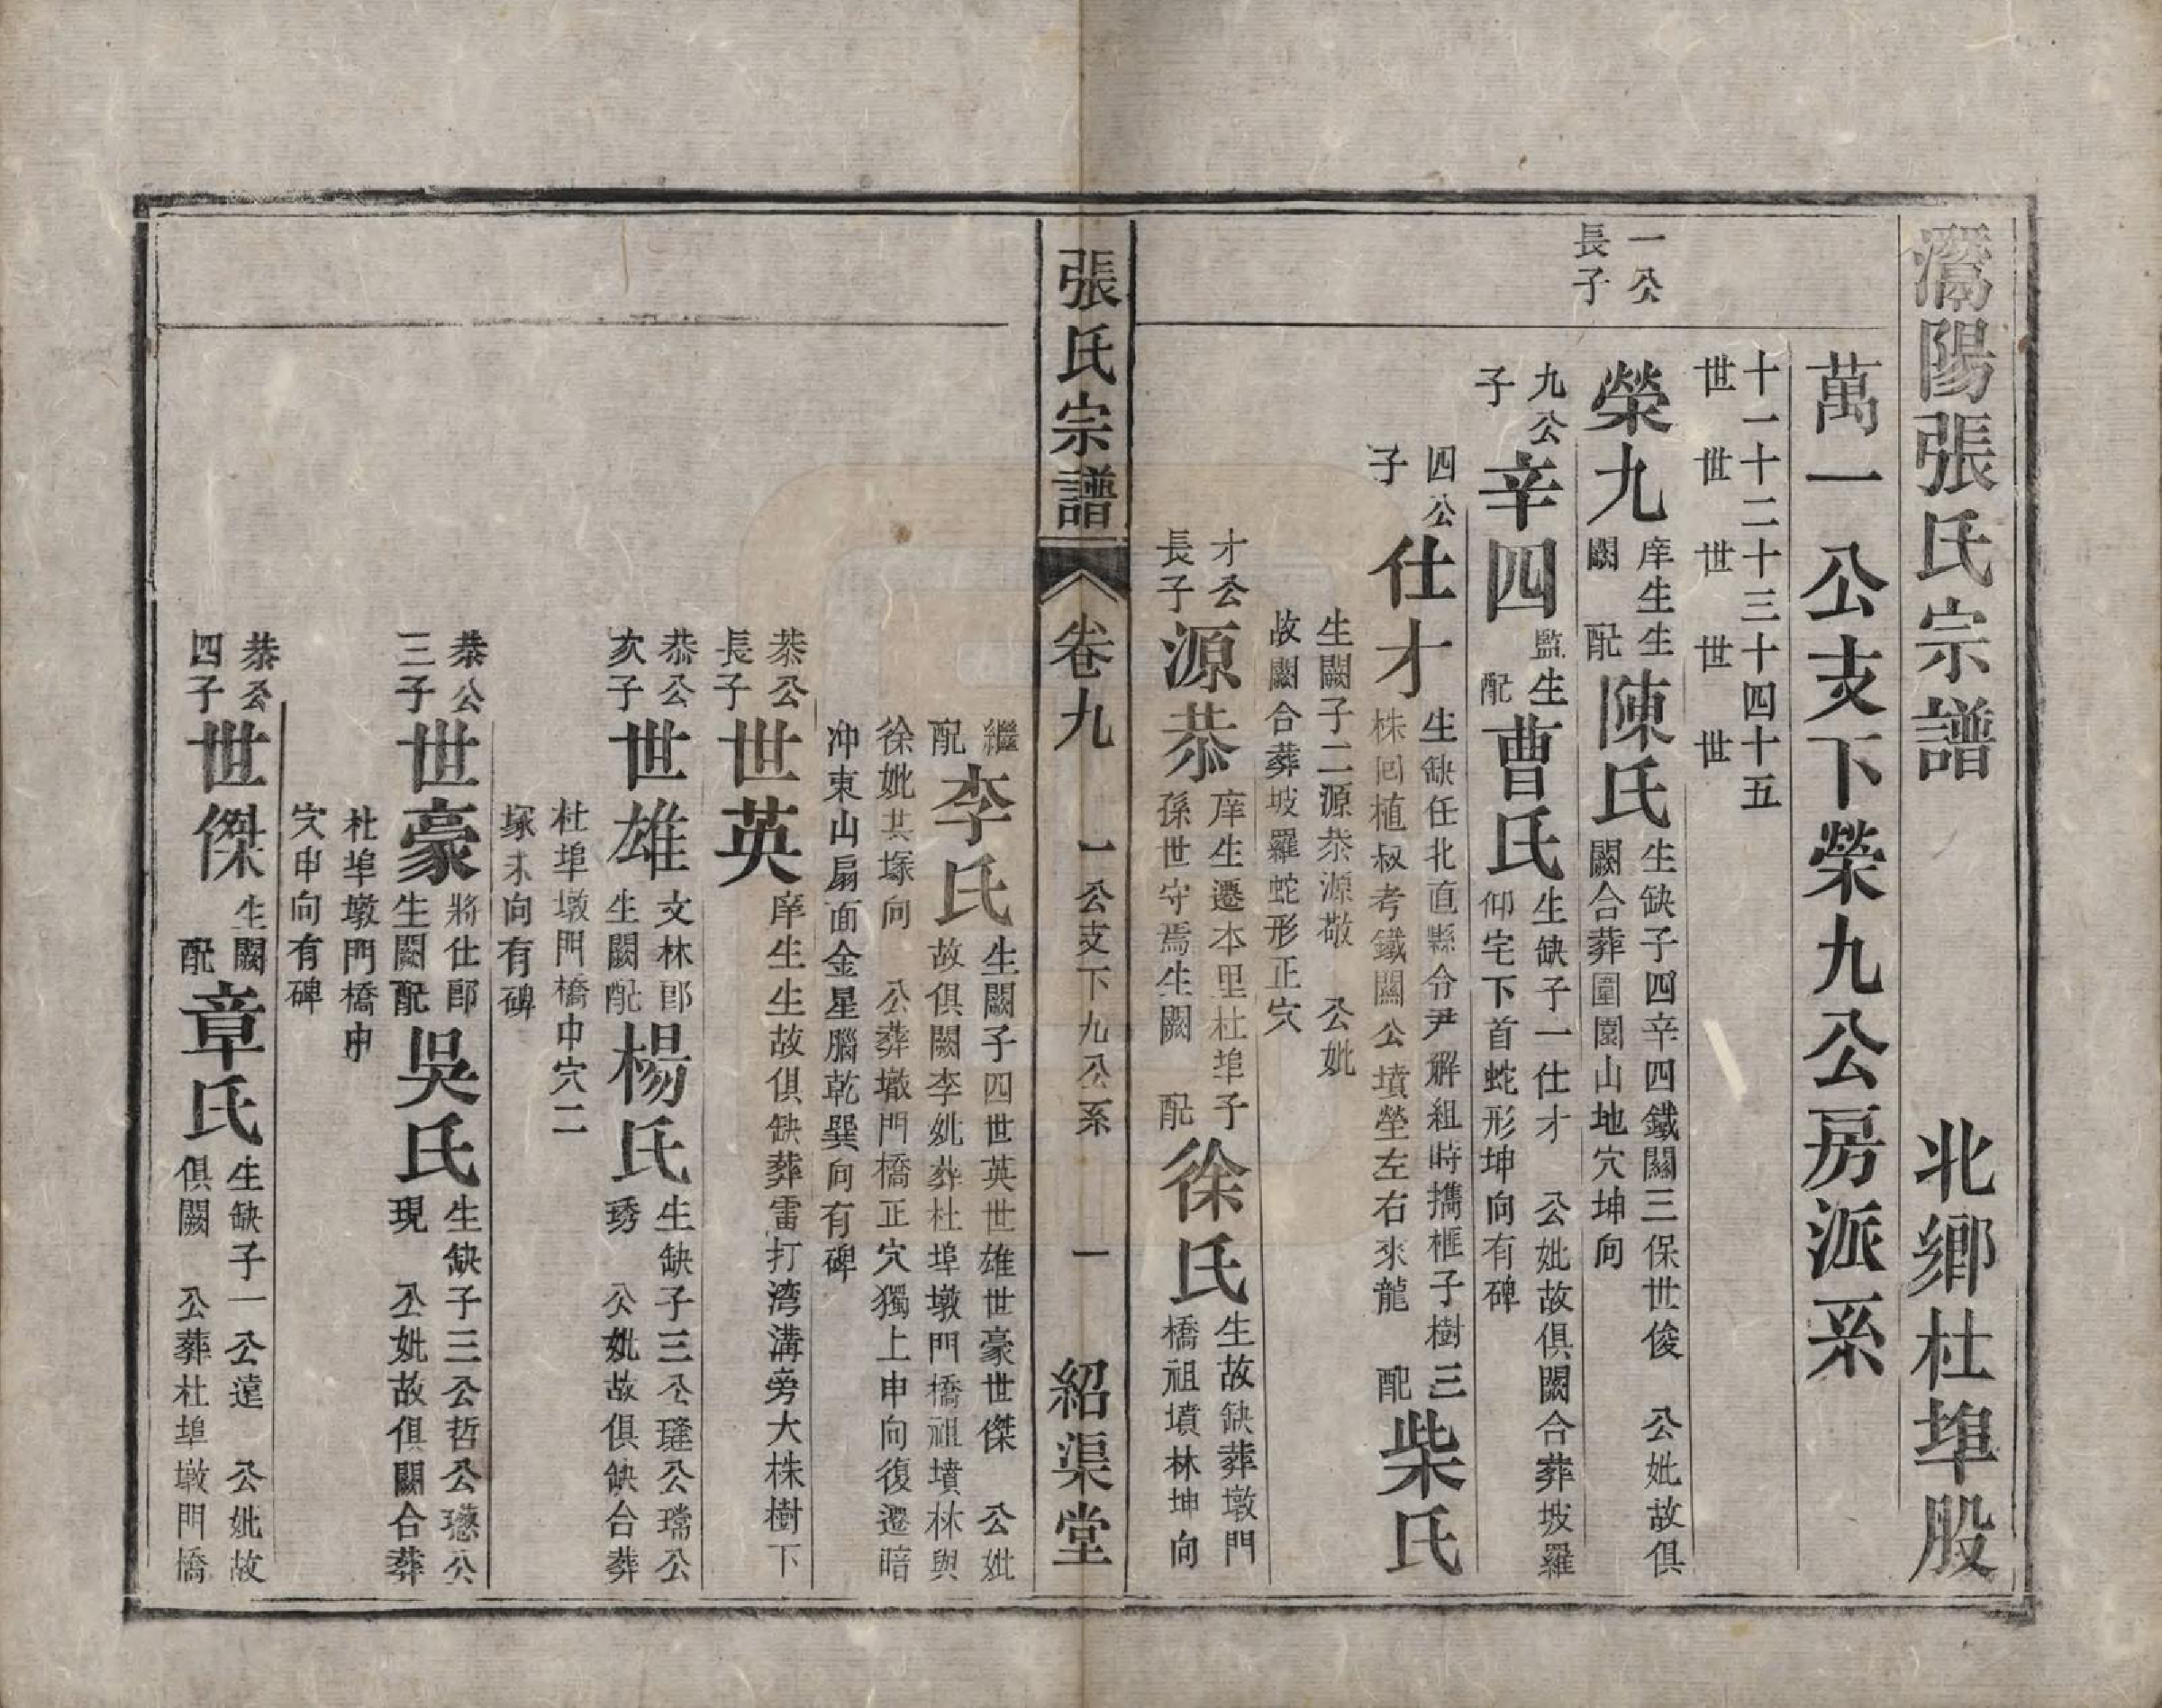 灊陽張氏宗譜　北鄉杜埠股
萬一公支下榮九公房派系
十一十二十三十四十五
世　世　世　世　世
一公
長子
榮九
庠生生
闕　配
陳氏
生缺子四辛四鐵關三保世俊　公妣故俱
闕合葬圍園山地穴坤向
九公
子
辛四
監生
配
曹氏
生缺子一仕才　公妣故俱闕合葬坡羅
仰宅下首蛇形坤向有碑
四公
子
仕才
生缺任北直縣令尹解組時攜框子樹三
株回植叔考鐵關公墳塋左右來龍　配
柴氏
生闕子二源恭源敬　公妣
故闕合葬坡羅蛇形正穴
才公
長子
源恭
庠生遷本里杜埠子
孫世守焉生闕　配
徐氏
生故缺葬墩門
橋祖墳林坤向
張氏宗譜　卷九　一公支下九公系　一　紹渠堂
繼
配
李氏
生闕子四世英世雄世豪世傑　公妣
故俱闕李妣葬杜埠墩門橋祖墳林與
徐妣共塚向　公葬墩門橋正穴獨上申向復遷暗
冲東山扇面金星腦乾巽向有碑
恭公
長子
世英
庠生生故俱缺葬雷打湾溝旁大株樹下
恭公
次子
世雄
文林郎
生闕配
楊氏
生缺子三公璲公璫公
琇　公妣故俱缺合葬
杜埠墩門橋中穴二
塚未向有碑
恭公
三子
世豪
將仕郎
生闕配
吳氏
生缺子三公哲公璁公
現　公妣故俱闕合葬
杜埠墩門橋中
穴申向有碑
恭公
四子
世傑
生闕
配
章氏
生缺子一公達　公妣故
俱闕　公葬杜埠墩門橋